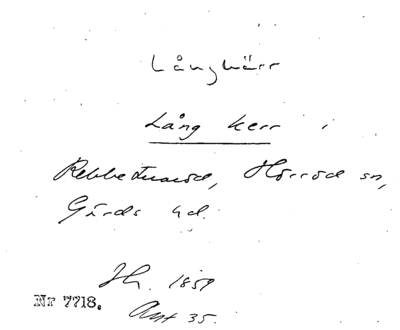 Långkärr
Lång kerr i
Rebbetuaröd, Hörröd sn,
Gärds hd.
Jh. 1859
Ant 35.
Nr 7718.